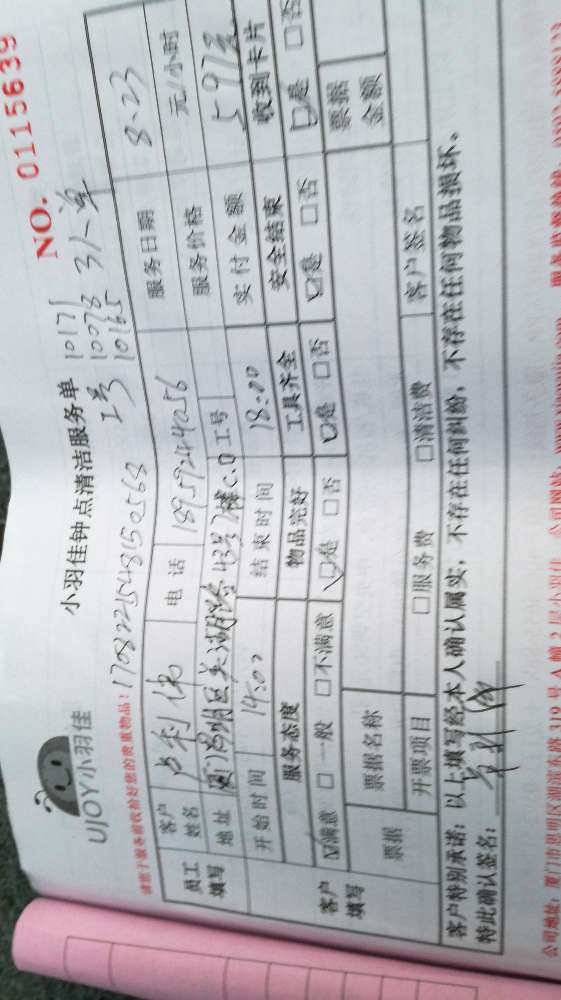 UJOY小羽佳
小羽佳钟点清洁服务单
NO. 0115639
10171
10078 31人单
10165
工号
请您于服务前收拾好您的贵重物品!
170822548150568
员工填写
客户姓名 卢利伟 电话 18957244056 服务日期 8-23
服务价格 元/小时
地址 43号7楼C.D 工号 实付金额 597
开始时间 14:00 结束时间 18:00
客户填写
服务态度 物品完好 工具齐全 安全结束 收到卡片
☑满意 □一般 □不满意 ☑是 □否 ☑是 □否 ☑是 □否 ☑是 □否
票据 票据名称 票据金额
开票项目 □服务费 □清洁费 客户签名
客户特别承诺:以上填写经本人确认属实,不存在任何纠纷,不存在任何物品损坏。
特此确认签名:
公司地址:厦门市思明区湖滨东路319号A幢2层小羽佳 公司网站: